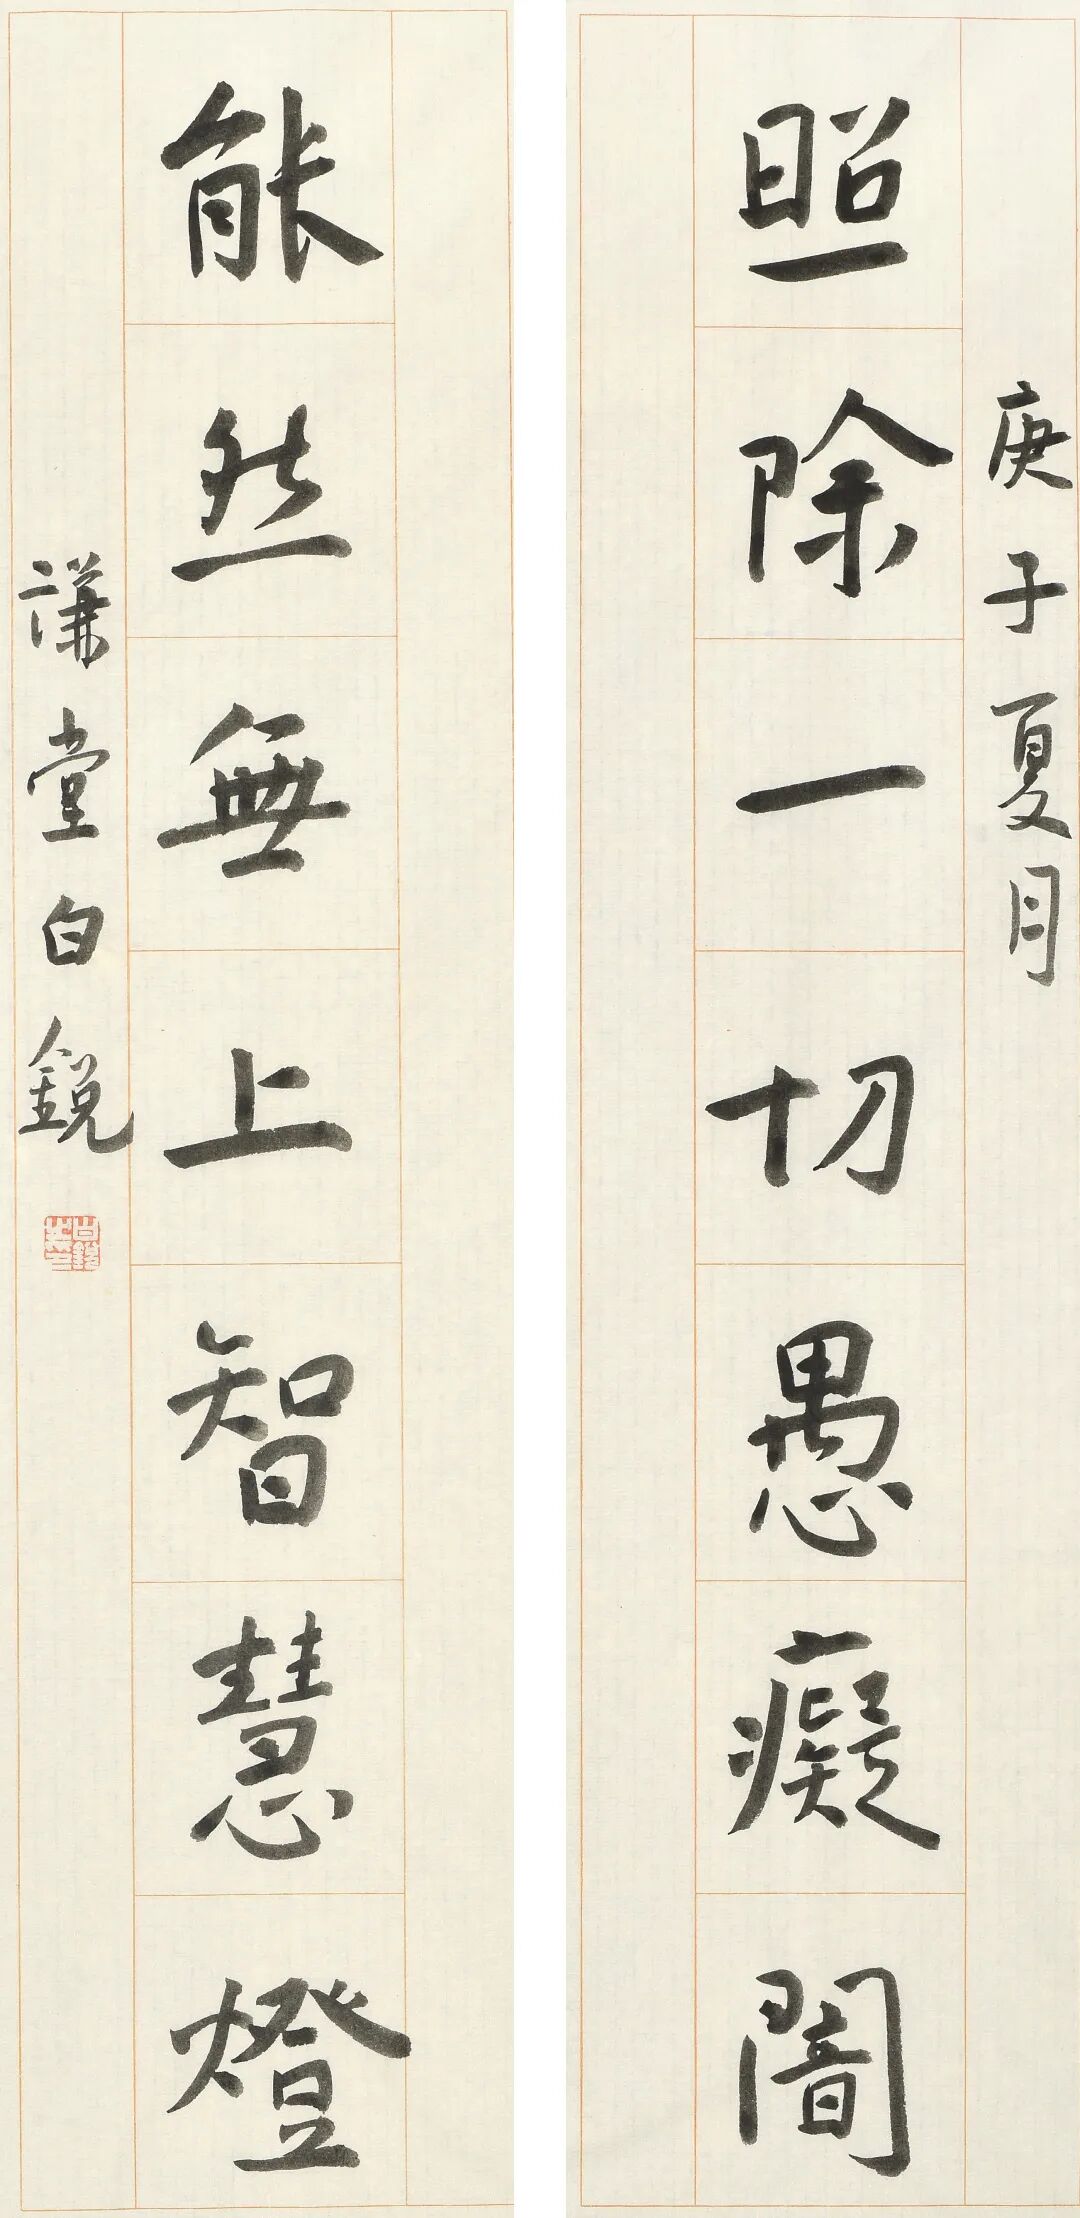 庚子夏月
照除一切愚癡闇
能然無上智慧燈
謙堂白銳